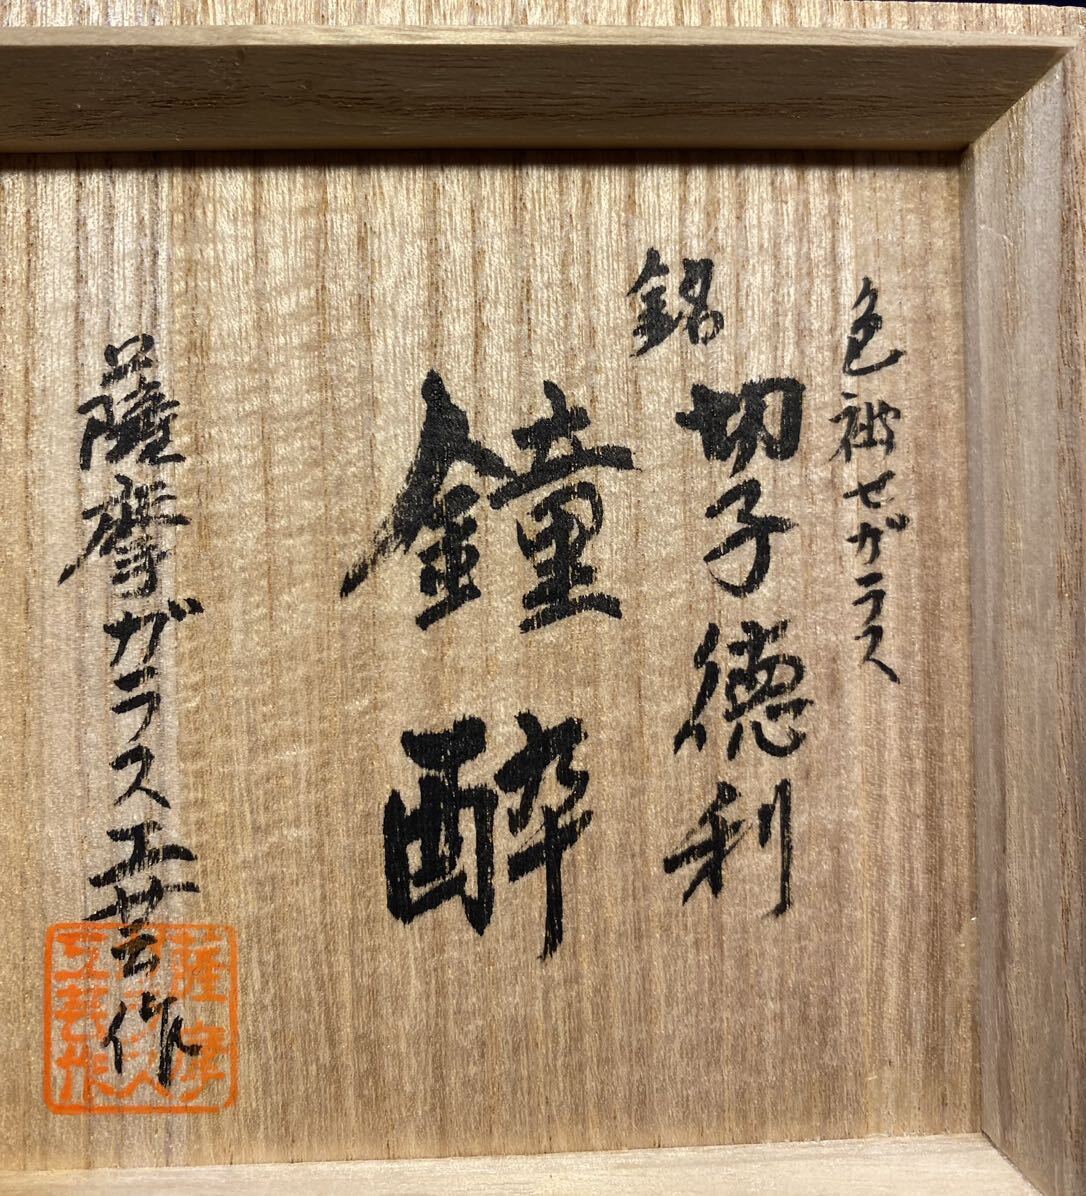 色被せガラス
切子徳利
銘
鐘酔
薩摩ガラス工芸作
薩摩
ガラス
工芸作